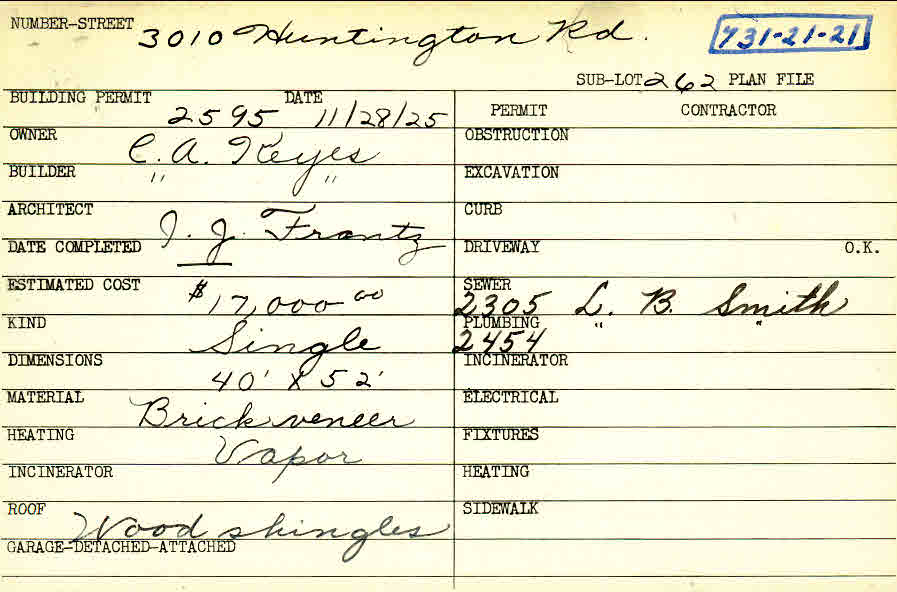 NUMBER-STREET 3010 Huntington Rd. 731-21-21
SUB-LOT 262 PLAN FILE
BUILDING PERMIT 2595 DATE 11/28/25
PERMIT CONTRACTOR
OWNER C. A. Keyes
OBSTRUCTION
BUILDER " "
EXCAVATION
ARCHITECT I. J. Frantz
CURB
DATE COMPLETED
DRIVEWAY O.K.
ESTIMATED COST $17,000 00
SEWER 2305 L. B. Smith
KIND Single
PLUMBING 2454 " "
DIMENSIONS 40' x 52'
INCINERATOR
MATERIAL Brick veneer
ELECTRICAL
HEATING Vapor
FIXTURES
INCINERATOR
HEATING
ROOF Wood shingles
SIDEWALK
GARAGE-DETACHED-ATTACHED